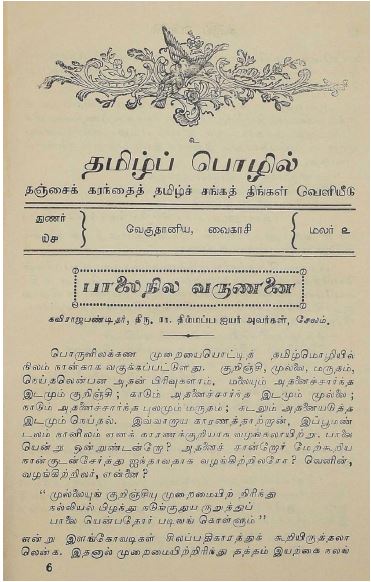 உ
தமிழ்ப் பொழில்
தஞ்சைக் கரந்தைத் தமிழ்ச் சங்கத் திங்கள் வெளியீடு
துணர்
௰௪
வெகுதானிய, வைகாசி
மலர் ௨
பாலைநில வருணனை
கவிராஜபண்டிதர், திரு. ரா. திம்மப்ப ஐயர் அவர்கள், சேலம்.
பொருளிலக்கண முறையையொட்டித் தமிழ்மொழியில்
நிலம் நான்காக வகுக்கப்பட்டுளது. குறிஞ்சி, முல்லை, மருதம்,
நெய்தலென்பன அதன் பிரிவுகளாம். மலையும் அதனைச்சார்ந்த
இடமும் குறிஞ்சி; காடும் அதனைச்சார்ந்த இடமும் முல்லை;
நாடும் அதனைச்சார்ந்த புலமும் மருதம்; கடலும் அதனையடுத்த
இடமும் நெய்தல். இவ்வாறாய காரணத்தாற்றான், இப்பூமண்
டலம் நானிலம் எனக் காரணக்குறியாக வழங்கலாயிற்று. பாலை
யென்று ஒன்றுண்டன்றே? அதனைச் சான்றோர் மேற்கூறிய
நான்குடன்சேர்த்து ஐந்தாவதாக வழங்கிற்றிலரோ? வெனின்,
வழங்கிற்றிலர், என்னை?
“ முல்லையுங் குறிஞ்சியு முறைமையிற் றிரிந்து
நல்லியல் பிழந்து நடுங்குதுய ருறுத்துப்
பாலை யென்பதோர் படிவங் கொள்ளும் ”
என்று இளங்கோவடிகள் சிலப்பதிகாரத்துக் கூறியிருத்தலா
லென்க. இதனால் முறைமையிற்றிரிந்து தத்தம் இயற்கை நலங்
6